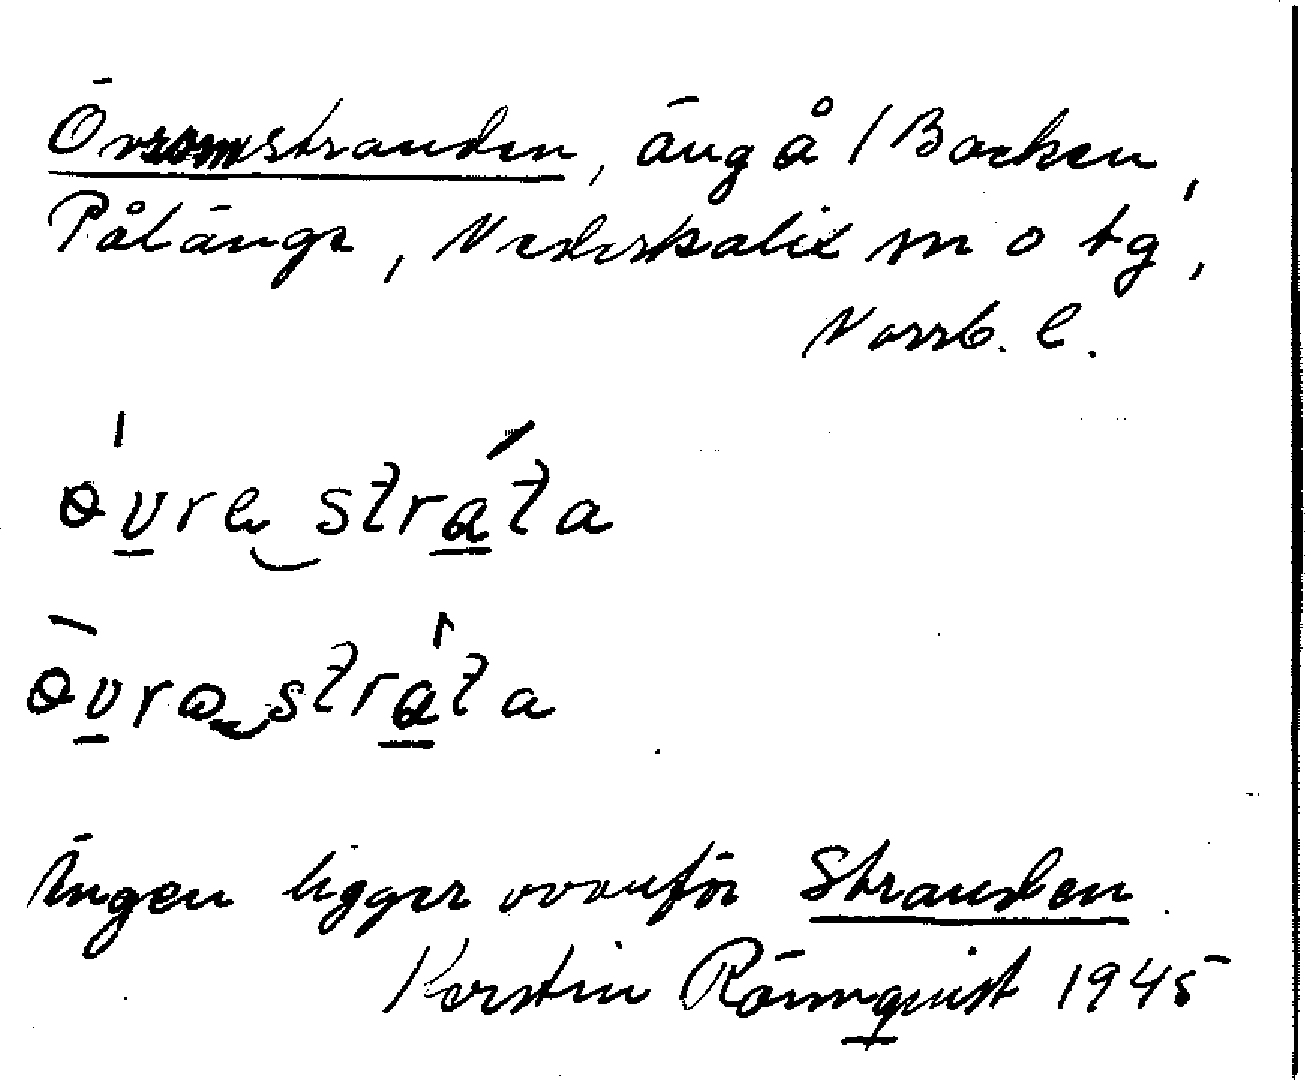 Övromstranden, äng å / Backen,
Pålänge, Nederkalix sn o tg,
Norrb. l.
øvre strata
øvrə strata
Ängen ligger ovanför Stranden
Kerstin Rönnquist 1945